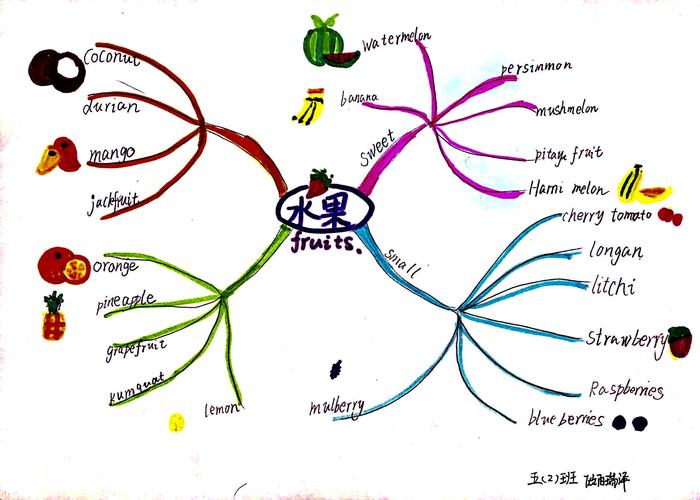 水果
fruits.
Sweet
watermelon
banana
persimmon
mushmelon
pitaya fruit
Hami melon
small
cherry tomato
longan
litchi
Strawberry
Raspberries
blueberries
mulberry
coconut
durian
mango
jackfruit
orange
pineapple
grapefruit
kumquat
lemon
五(2)班